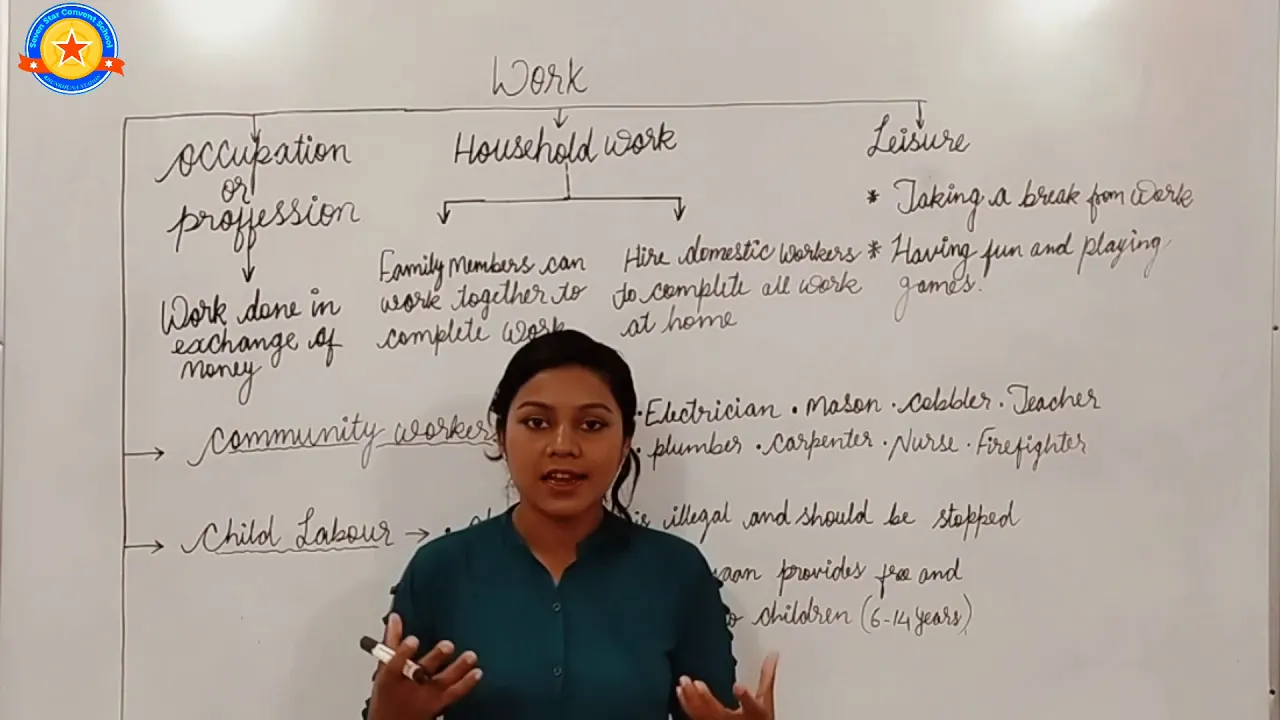 Seven Star Convent School
Work
Occupation
or
proffession
Work done in
exchange of
Money
Household work
Family Members can
work together to
complete work
Hire domestic workers
to complete all work
at home
Leisure
* Taking a break from work
* Having fun and playing
games.
Community workers
• Electrician • Mason • cobbler • Teacher
• plumber • carpenter • Nurse • Firefighter
Child Labour → •
is illegal and should be stopped
provides free and
children (6-14 years)